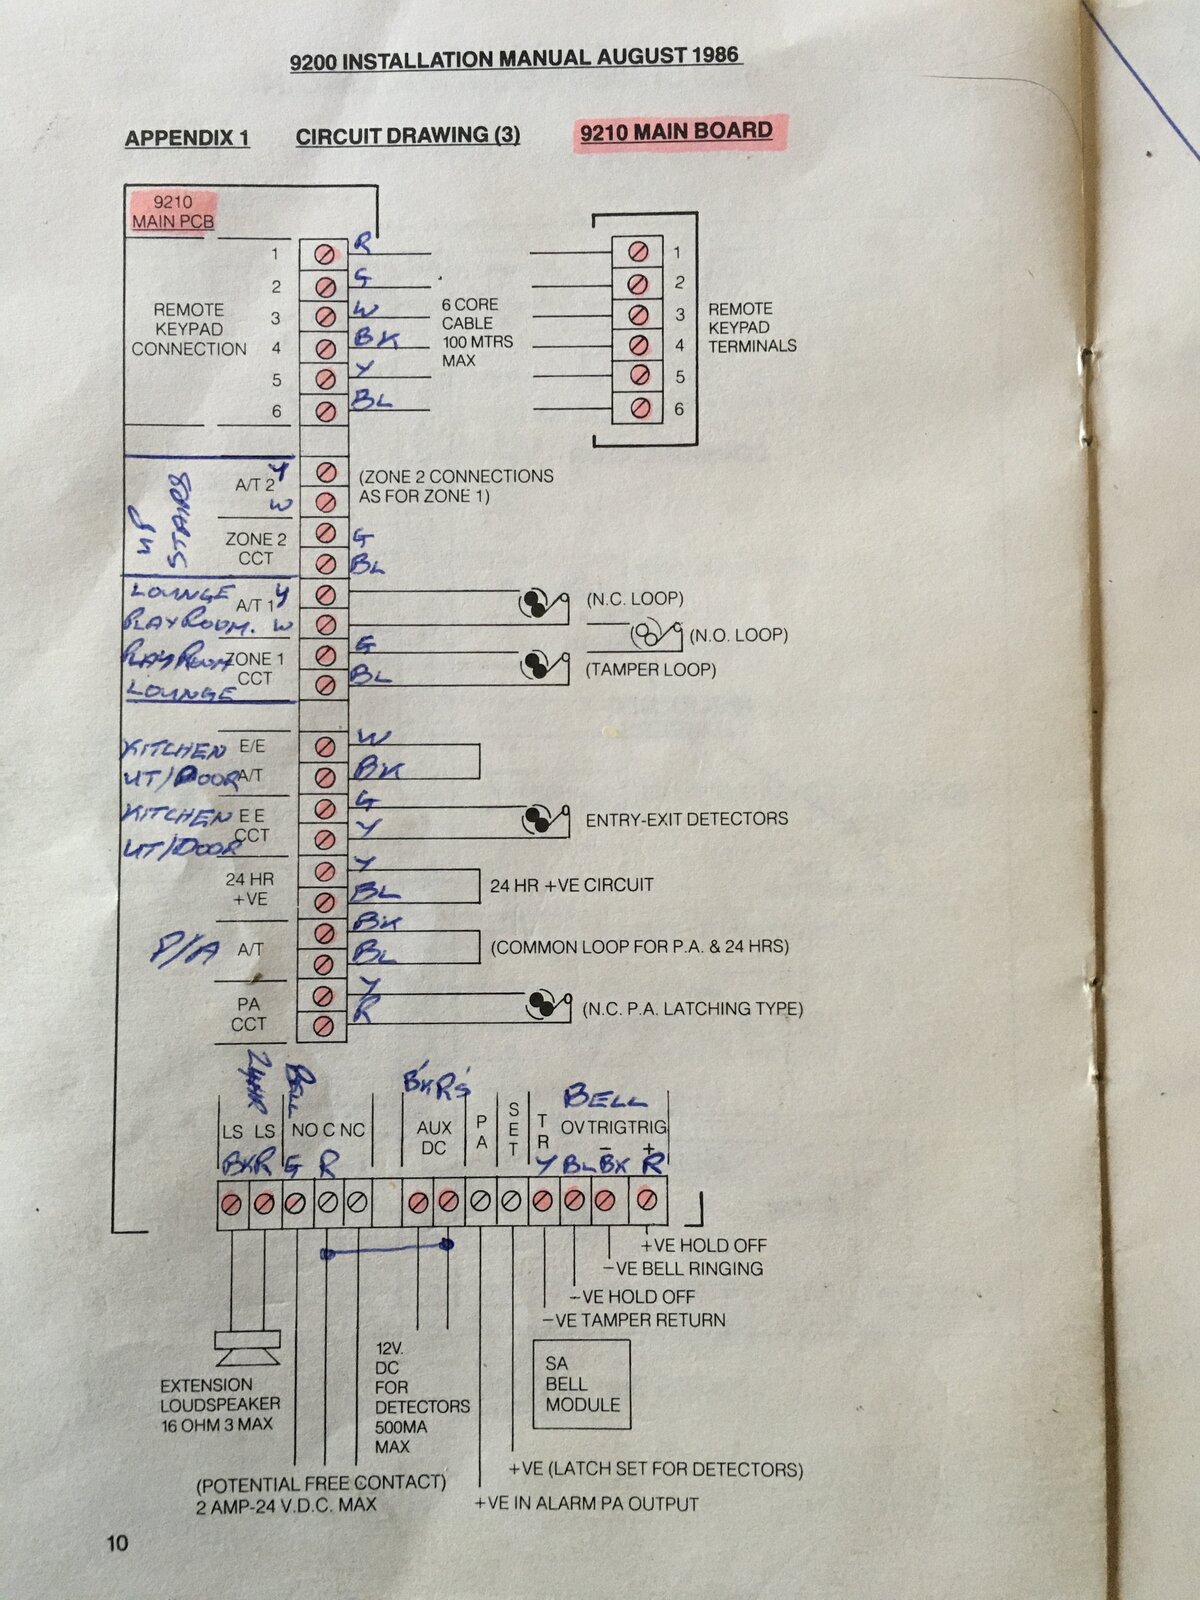 9200 INSTALLATION MANUAL AUGUST 1986
APPENDIX 1 CIRCUIT DRAWING (3) 9210 MAIN BOARD
9210
MAIN PCB
REMOTE
KEYPAD
CONNECTION
1 R
2 G
3 W
4 BK
5 Y
6 BL
6 CORE
CABLE
100 MTRS
MAX
1
2
3
4
5
6
REMOTE
KEYPAD
TERMINALS
UP
STAIRS
A/T 2 Y
W
(ZONE 2 CONNECTIONS
AS FOR ZONE 1)
ZONE 2
CCT
G
BL
LOUNGE A/T 1 Y
PLAYROOM. W
(N.C. LOOP)
(N.O. LOOP)
PLAYROOM ZONE 1 G
LOUNGE CCT BL
(TAMPER LOOP)
KITCHEN E/E W
UT/DOOR A/T BK
KITCHEN E E G
UT/DOOR CCT Y
ENTRY-EXIT DETECTORS
24 HR Y
+VE BL
24 HR +VE CIRCUIT
P/A A/T BK
BL
(COMMON LOOP FOR P.A. & 24 HRS)
PA Y
CCT R
(N.C. P.A. LATCHING TYPE)
24HR BELL BK'RS' BELL
LS LS NO C NC AUX DC PA SET TR OV TRIG− TRIG+
BK R G R Y BL BK R
+VE HOLD OFF
−VE BELL RINGING
−VE HOLD OFF
−VE TAMPER RETURN
EXTENSION
LOUDSPEAKER
16 OHM 3 MAX
12V.
DC
FOR
DETECTORS
500MA
MAX
SA
BELL
MODULE
(POTENTIAL FREE CONTACT)
2 AMP-24 V.D.C. MAX
+VE (LATCH SET FOR DETECTORS)
+VE IN ALARM PA OUTPUT
10